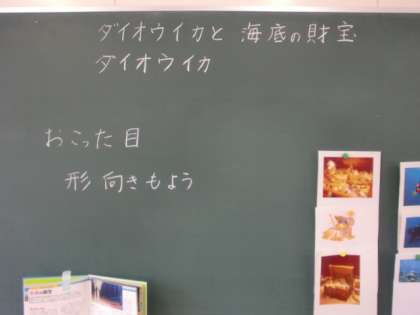 ダイオウイカと 海底の財宝
ダイオウイカ
おこった目
形 向きもよう